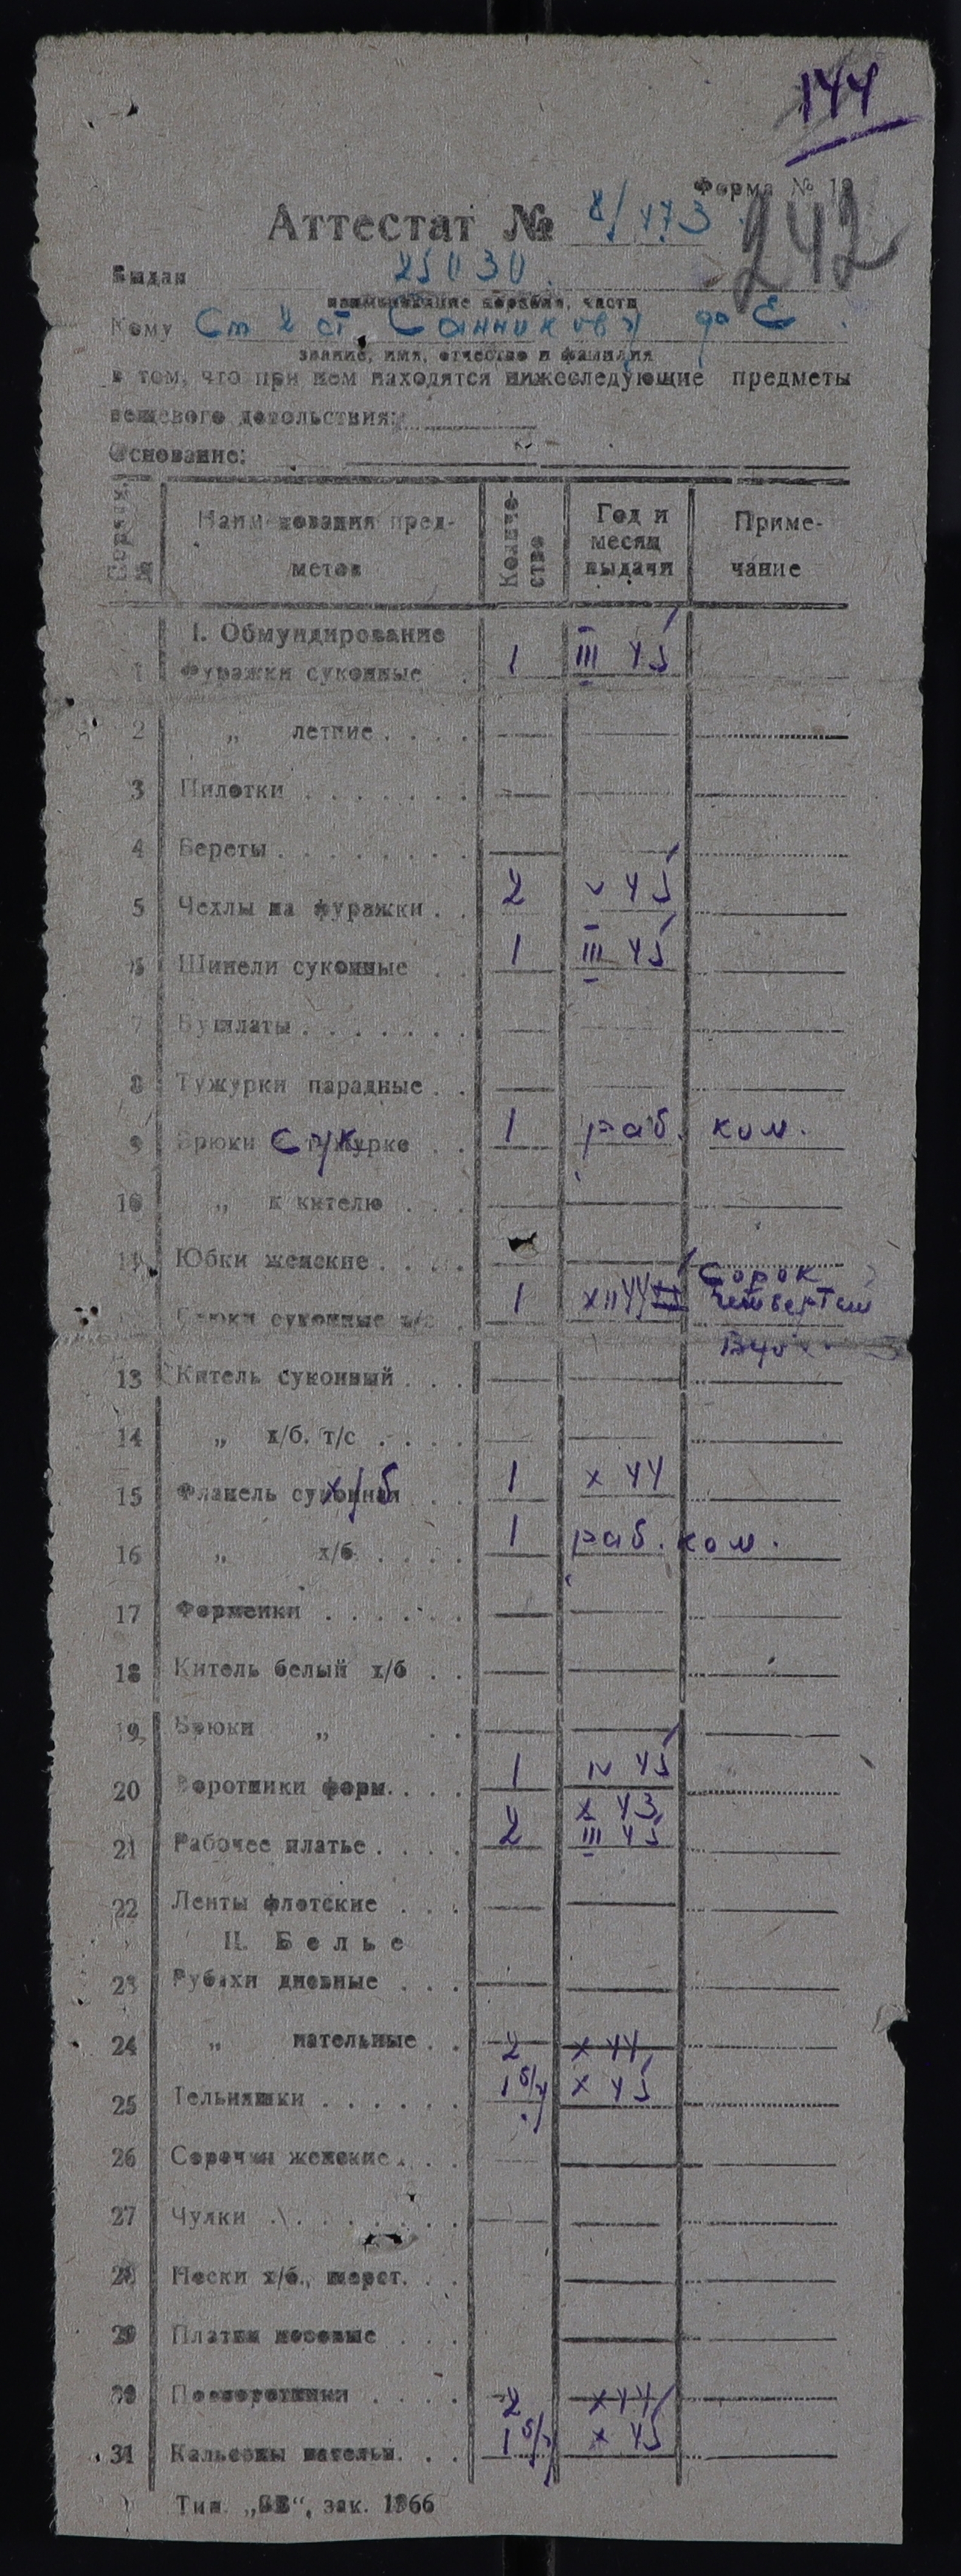 144
Форма № 19
242
Аттестат № 8/173
Выдан 25030
наименование корабля, части
Кому Ст 2 ст. Санникову
звание, имя, отчество и фамилия
в том, что при нем находятся нижеследующие предметы
вещевого довольствия:
Основание:
Наименования предметов Количество Год и месяц выдачи Примечание
I. Обмундирование
1 Фуражки суконные 1 III 45
2 „ летние
3 Пилотки
4 Береты
5 Чехлы на фуражки 2 V 45
6 Шинели суконные 1 III 45
7 Бушлаты
8 Тужурки парадные
9 Брюки к тужурке Сук 1 раб. ком.
10 „ к кителю
11 Юбки женские
Сорок
Брюки суконные 1 XII 44 четвертый
13 Китель суконный
14 „ х/б. т/с
15 Фланель суконная х/б 1 X 44
16 „ х/б 1 раб. ком.
17 Форменки
18 Китель белый х/б
19 Брюки „
20 Воротники форм. 1 IV 45
X 43
21 Рабочее платье 2 III 45
22 Ленты флотские
II. Белье
23 Рубахи дневные
24 „ нательные 2 X 44
25 Тельняшки 1 б/у X 45
26 Сорочки женские
27 Чулки
28 Носки х/б., шерст.
29 Платки носовые
30 Подворотнички 2 X 44
31 Кальсоны нательн. 1 б/у X 45
Тип. зак. 1366